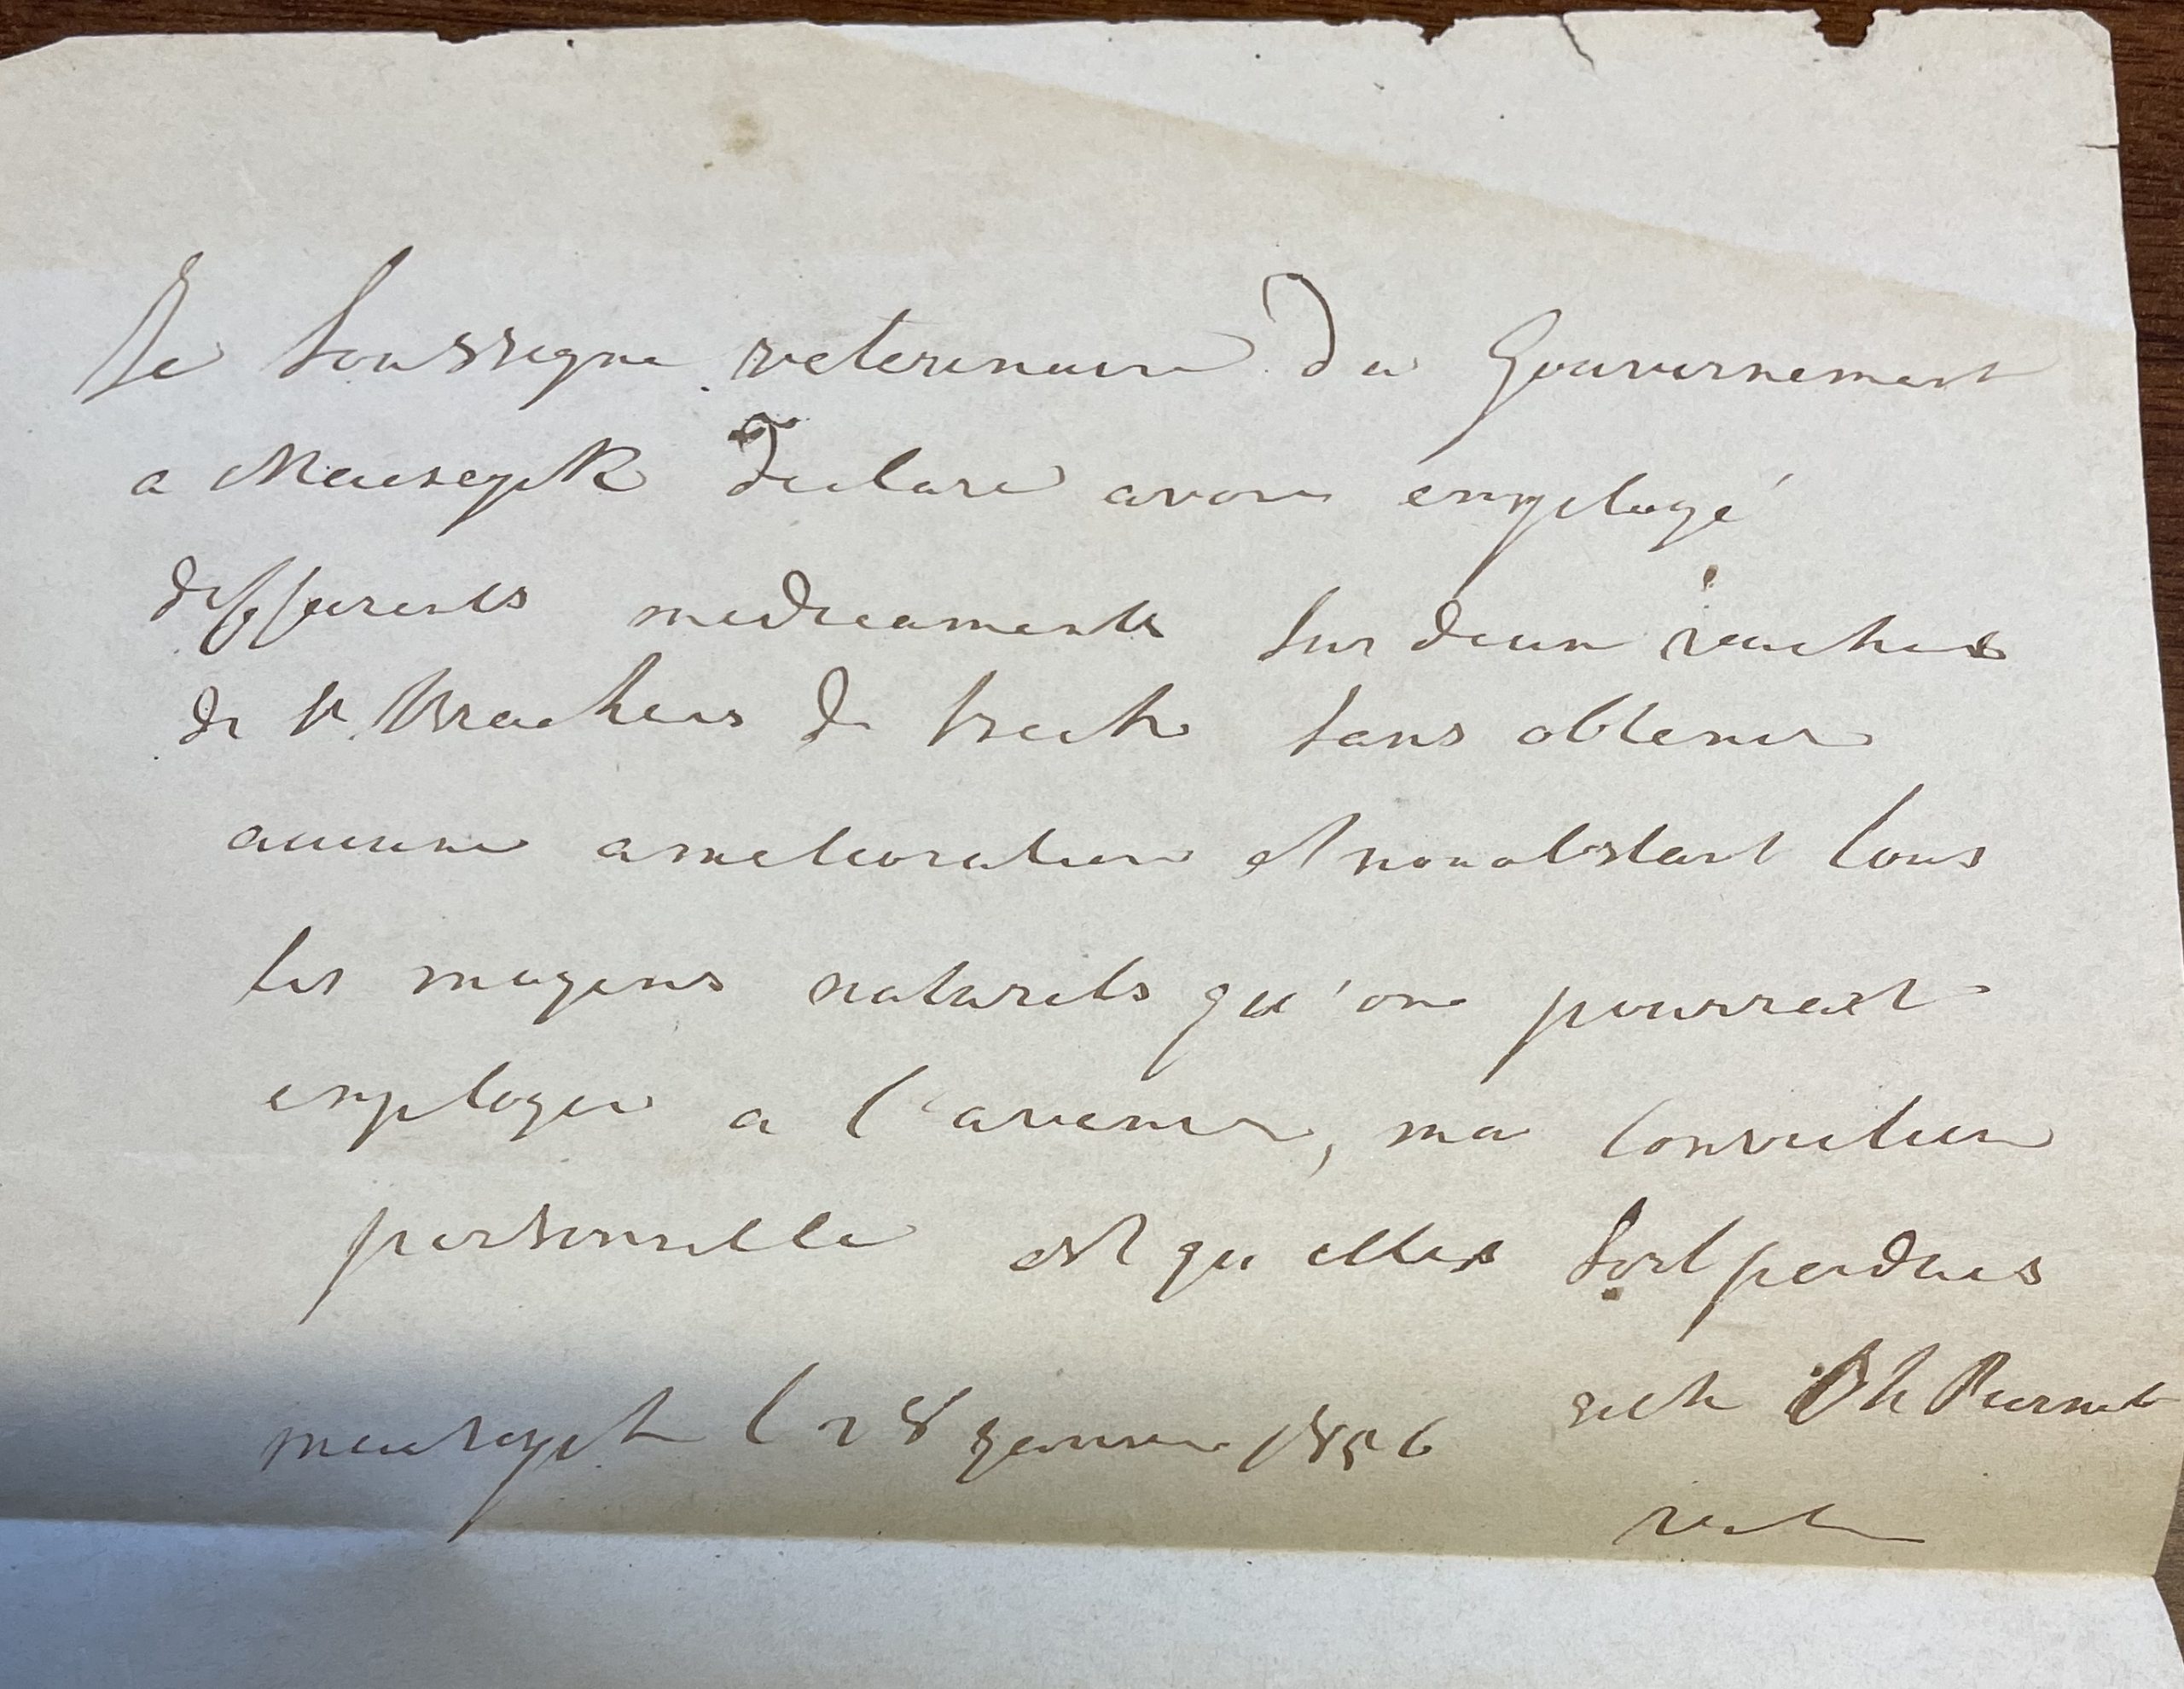 Je soussigne veterinaire du Gouvernement
a Maeseyck declare avoir employé
differents medicaments sur deux vaches
de V. Brachers de sans obtenir
aucune amelioration et nonobstant tous
les moyens naturels qu'on pourrait
employer a l'avenir, ma conviction
personnelle est qu elles sont perdues
maeseyck l 28 janvier 1856